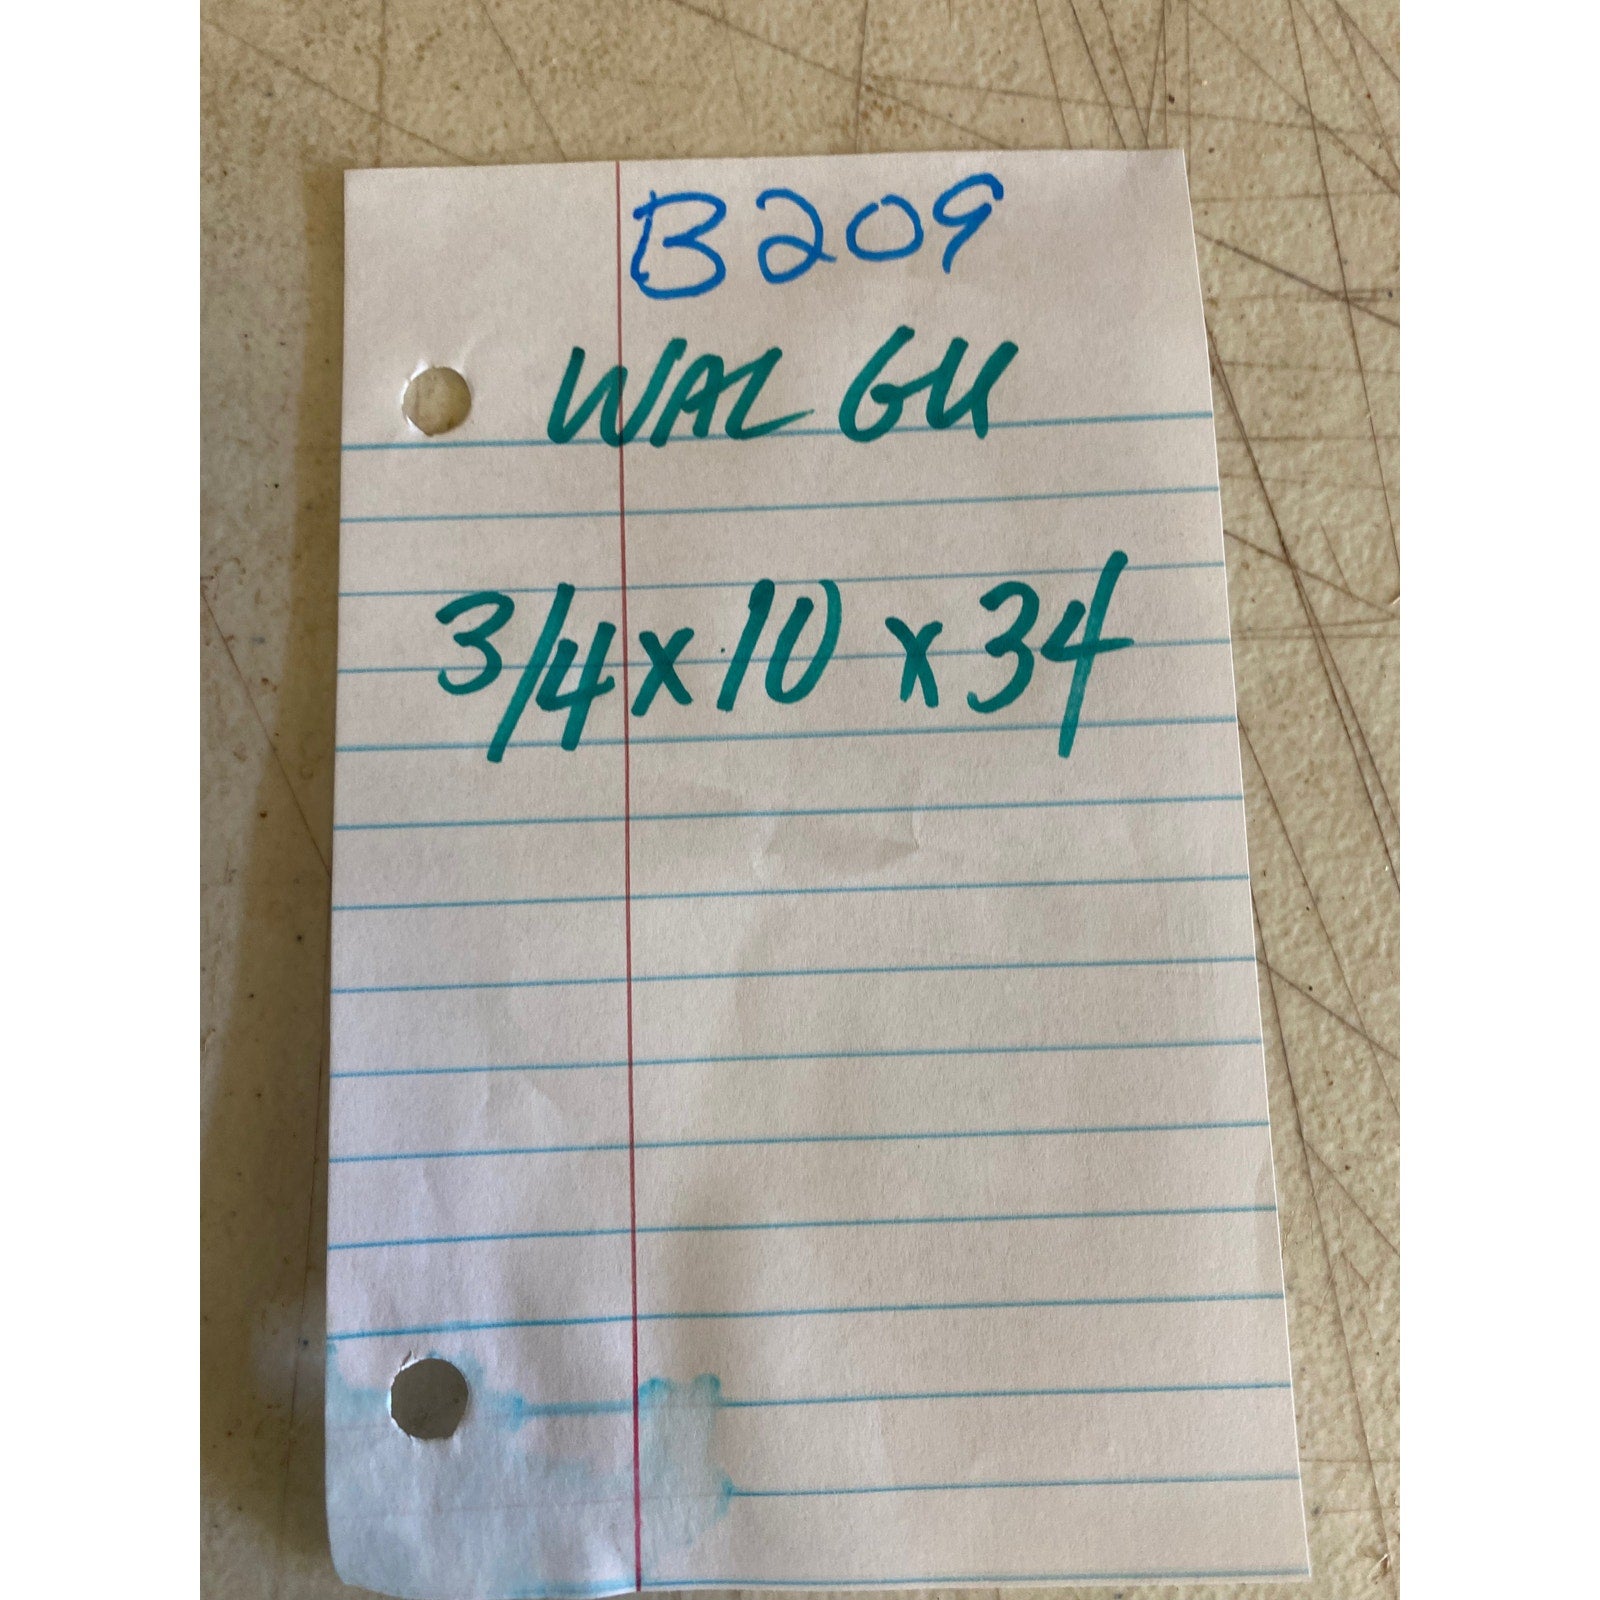 B209
WAL GU
3/4x10 x34